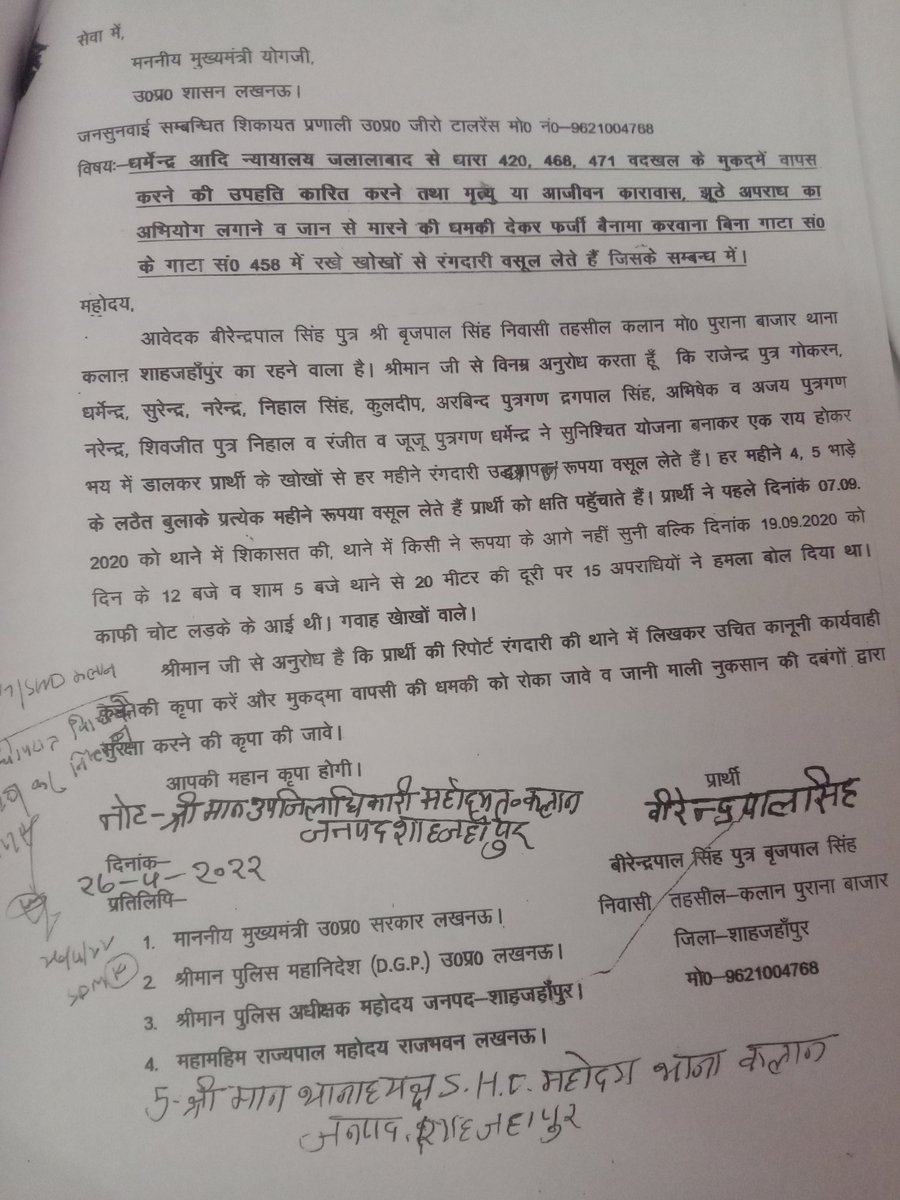 सेवा में,
मननीय मुख्यमंत्री योगजी,
उ0प्र0 शासन लखनऊ।
जनसुनवाई सम्बन्धित शिकायत प्रणाली उ0प्र0 जीरो टालरेंस मो0 नं0–9621004768
विषयः–धर्मेन्द्र आदि न्यायालय जलालाबाद से धारा 420, 468, 471 वदखल के मुकद्में वापस
करने की उपहति कारित करने तथा मृत्यु या आजीवन कारावास, झूठे अपराध का
अभियोग लगाने व जान से मारने की धमकी देकर फर्जी बैनामा करवाना बिना गाटा सं0
के गाटा सं0 458 में रखे खोखों से रंगदारी वसूल लेते हैं जिसके सम्बन्ध में।
महोदय,
आवेदक बीरेन्द्रपाल सिंह पुत्र श्री बृजपाल सिंह निवासी तहसील कलान मो0 पुराना बाजार थाना
कलान शाहजहाँपुंर का रहने वाला है। श्रीमान जी से विनम्र अनुरोध करता हूँ कि राजेन्द्र पुत्र गोकरन,
धर्मेन्द्र, सुरेन्द्र, नरेन्द्र, निहाल सिंह, कुलदीप, अरबिन्द पुत्रगण द्रगपाल सिंह, अभिषेक व अजय पुत्रगण
नरेन्द्र, शिवजीत पुत्र निहाल व रंजीत व जूजू पुत्रगण धर्मेन्द्र ने सुनिश्चित योजना बनाकर एक राय होकर
भय में डालकर प्रार्थी के खोखों से हर महीने रंगदारी रूपया वसूल लेते हैं। हर महीने 4, 5 भाड़े
के लठैत बुलाके प्रत्येक महीने रूपया वसूल लेते हैं प्रार्थी को क्षति पहुँचाते हैं। प्रार्थी ने पहले दिनांकं 07.09.
2020 को थाने में शिकासत की, थाने में किसी ने रूपया के आगे नहीं सुनी बल्कि दिनांक 19.09.2020 को
दिन के 12 बजे व शाम 5 बजे थाने से 20 मीटर की दूरी पर 15 अपराधियों ने हमला बोल दिया था।
काफी चोट लड़के के आई थी। गवाह खेाखों वाले।
श्रीमान जी से अनुरोध है कि प्रार्थी की रिपोर्ट रंगदारी की थाने में लिखकर उचित कानूनी कार्यवाही
की कृपा करें और मुकद्मा वापसी की धमकी को रोका जावे व जानी माली नुकसान की दबंगों द्वारा
सुरक्षा करने की कृपा की जावे।
आपकी महान कृपा होगी।
प्रार्थी
नोट–श्रीमान उपजिलाधिकारी महोदय त० कलान
जनपद शाहजहाँपुर
वीरेन्द्रपालसिंह
दिनांक–
२६–५–२०२२
बीरेन्द्रपाल सिंह पुत्र बृजपाल सिंह
प्रतिलिपि–
निवासी तहसील–कलान पुराना बाजार
1. माननीय मुख्यमंत्री उ0प्र0 सरकार लखनऊ।
जिला–शाहजहाँपुर
2 श्रीमान पुलिस महानिदेश (D.G.P.) उ0प्र0 लखनऊ।
मो0–9621004768
3. श्रीमान पुलिस अधीक्षक महोदय जनपद–शाहजहाँपुर।
4. महामहिम राज्यपाल महोदय राजभवन लखनऊ।
5-श्री मान थानाध्यक्ष S.H.O. महोदय थाना कलान
जनपद. शाहजहापुर